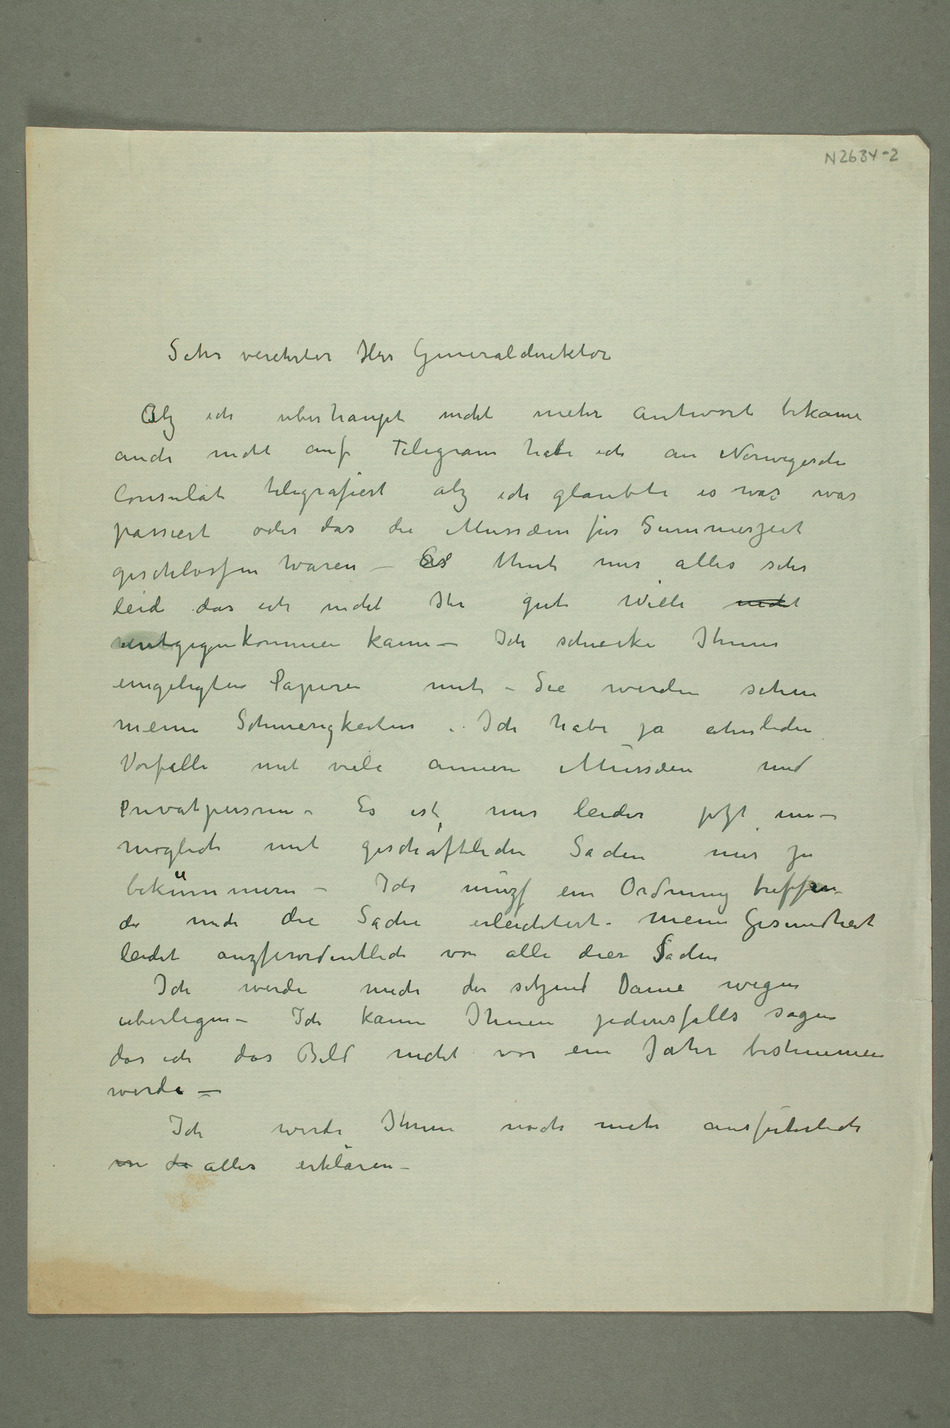 N2684-2
Sehr verehrter Herr Generaldirektor
Alz ich uberhaupt nicht mehr antwort bekame
auch nicht auf Telegram habe ich an Norwegische
Consulat telegrafiert alz ich glaubte es war was
passiert oder das die Mussæen für Summerzeit
geschlossen waren – Es thut mir alles sehr
leid das ich nicht Ihr gute Wille nicht
entgegenkommen kann – Ich schicke Ihnen
eingeligten Papiere mit – Sie werden sehen
meine Schwerigkeiten . Ich habe ja ahnliche
Vorfälle mit viele annere Mussæen und
Privatpersonen – Es ist mir leider jetzt un-
möglich mit geschäftliche Sachen mir zu
bekümmern – Ich muzs ein Ordnung treffen
die mich die Sache erleichtert – meine Gesundheit
leidet auzserordentlich von alle dies Sachen
Ich werde mich der sitzend Dame wegen
uberlegen – Ich kann Ihnen jedensfalls sagen
das ich das Bild nicht vor ein Jahr bestimmen
werde –
Ich werde Ihnen noch mehr ausfuhrlich
alles erklären –